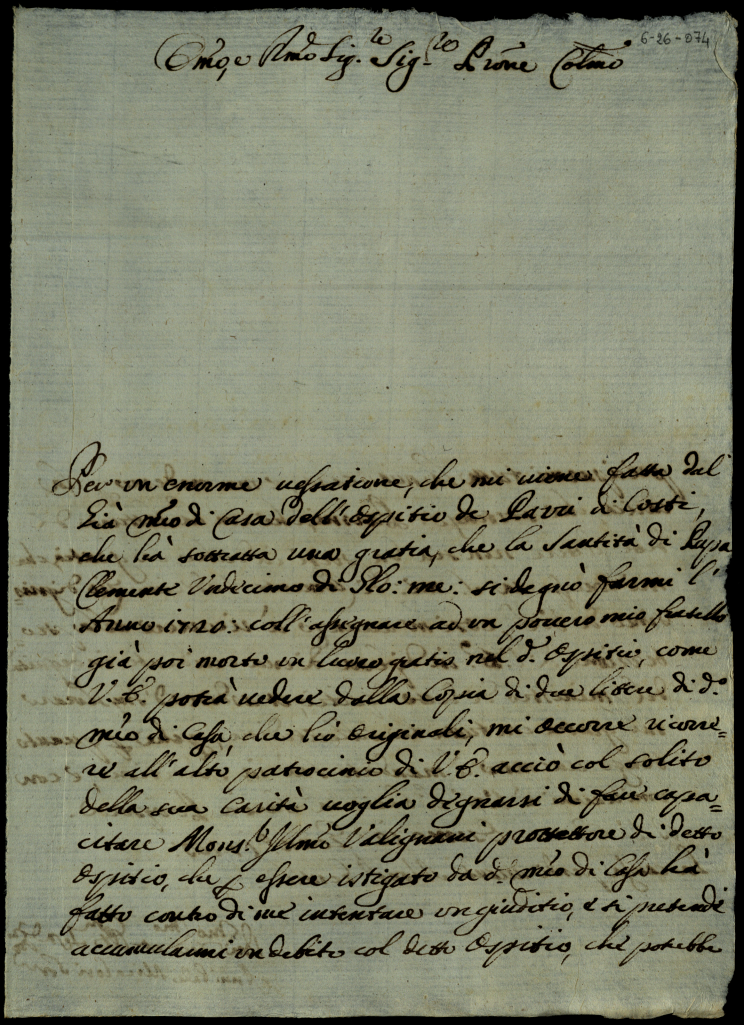 6-26-074
Emo, e Rmo Sig.re Sig.re Prone Colmo
Per un enorme vessatione, che mi viene fatta dal
già mro di Casa dell'Ospitio de Paveri di Costi,
che hà sottratta una gratia, che la Santità di Papa
Clemente Undecimo di Glo: me: si degnò farmi l'
Anno 1720: coll'assegnare ad un povero mio fratello
già poi morto un luogo gratis nel d.o Ospitio, come
V.E. potrà vedere dalla Copia di due lettere di d.o
mro di Casa che hò originali, mi occorre ricorre=
re all'alto patrocinio di V.E. acciò col solito
della sua Carità voglia degnarsi di fare capa=
citare Mons.r Illmo Valignani protettore di detto
Ospitio, che p essere istigato da d.o mro di Casa hà
fatto contro di me intentare un giuditio, e si pretende
accumularmi un debito col detto Ospitio, che potrebbe